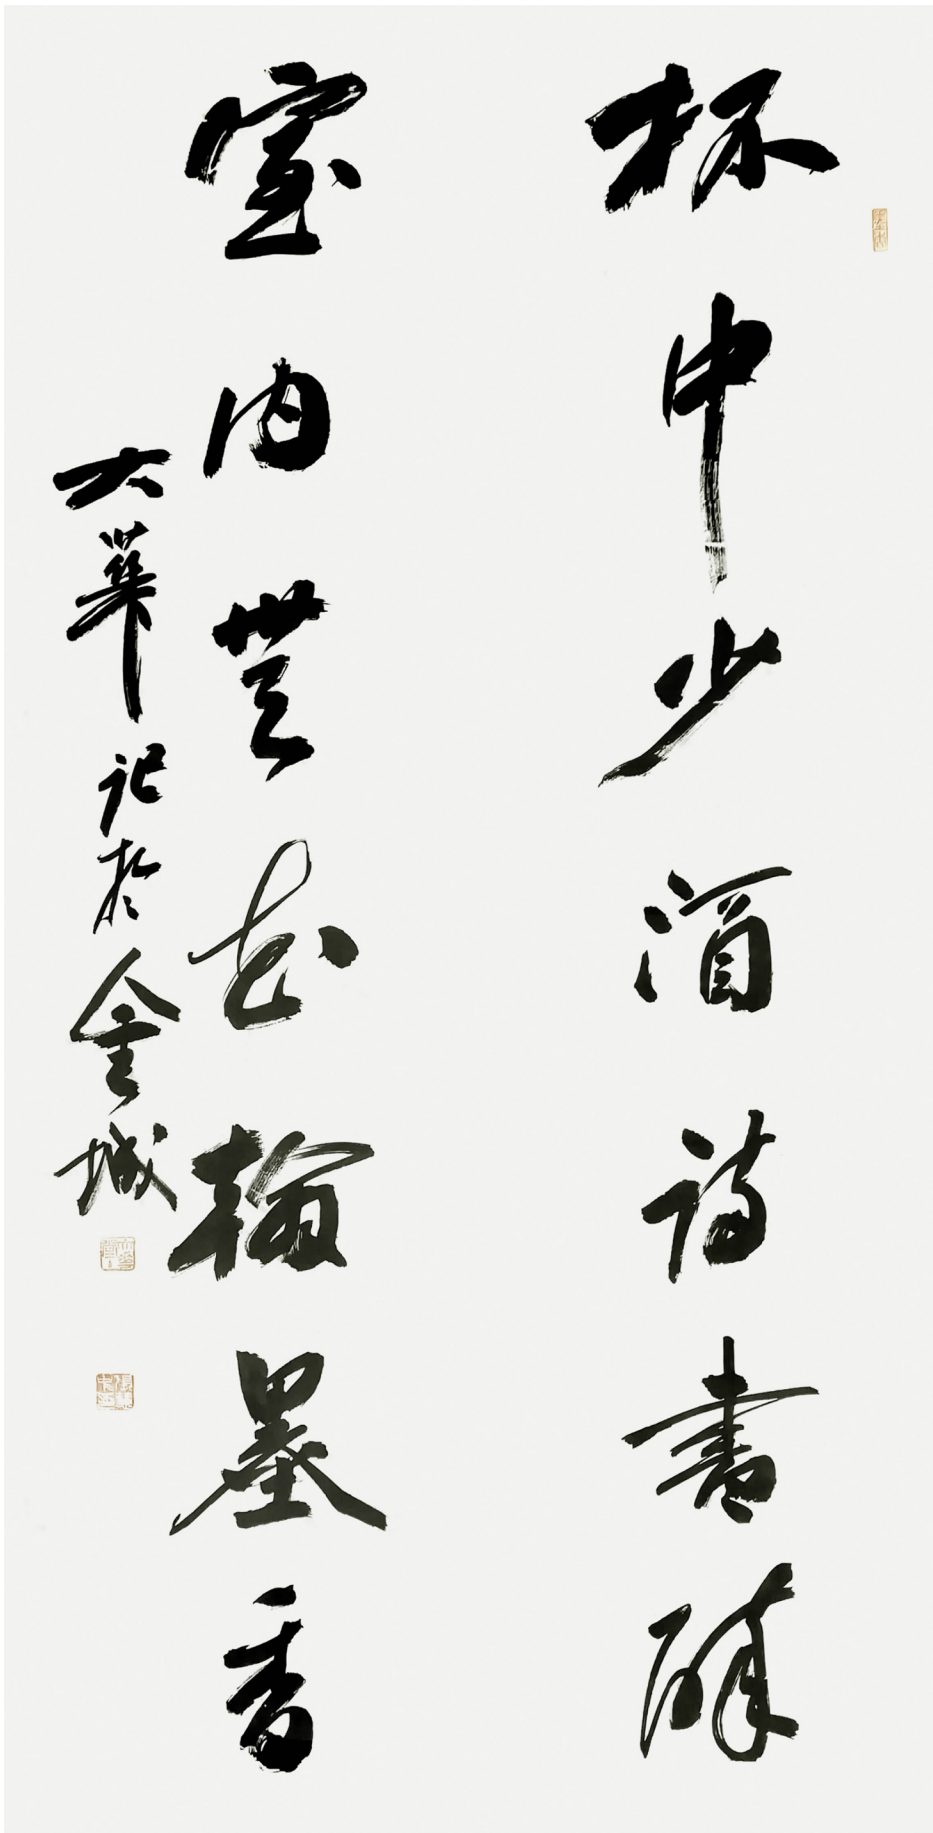 杯中少酒詩書醉
室内無花翰墨香
大華記於金城